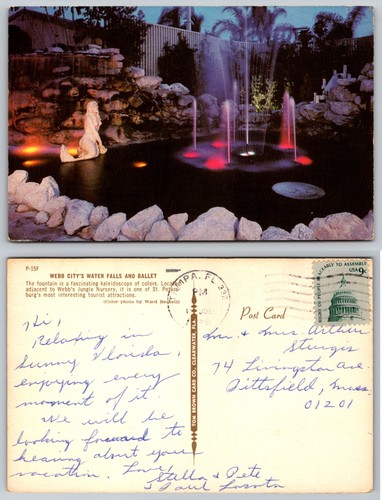 P-15F
WEBB CITY'S WATER FALLS AND BALLET
The fountain is a fascinating kaleidoscope of colors. Located
adjacent to Webb's Jungle Nursery, it is one of St. Peters-
burg's most interesting tourist attractions.
(Color photo by Ward Beckett)
TAMPA, FL
PM
PEACEABLY TO ASSEMBLE
USA 9c
Post Card
TOM BROWN CARD CO. CLEARWATER, FLA.
Hi,
Relaxing in
Sunny Florida,
enjoying every
moment of it.
We will be
looking forward to
hearing about your
vacation. Love,
Stella & Pete
& Paul
Mrs. Arthur
Sturgis
74 Livingston Ave.
Pittsfield, Mass.
01201